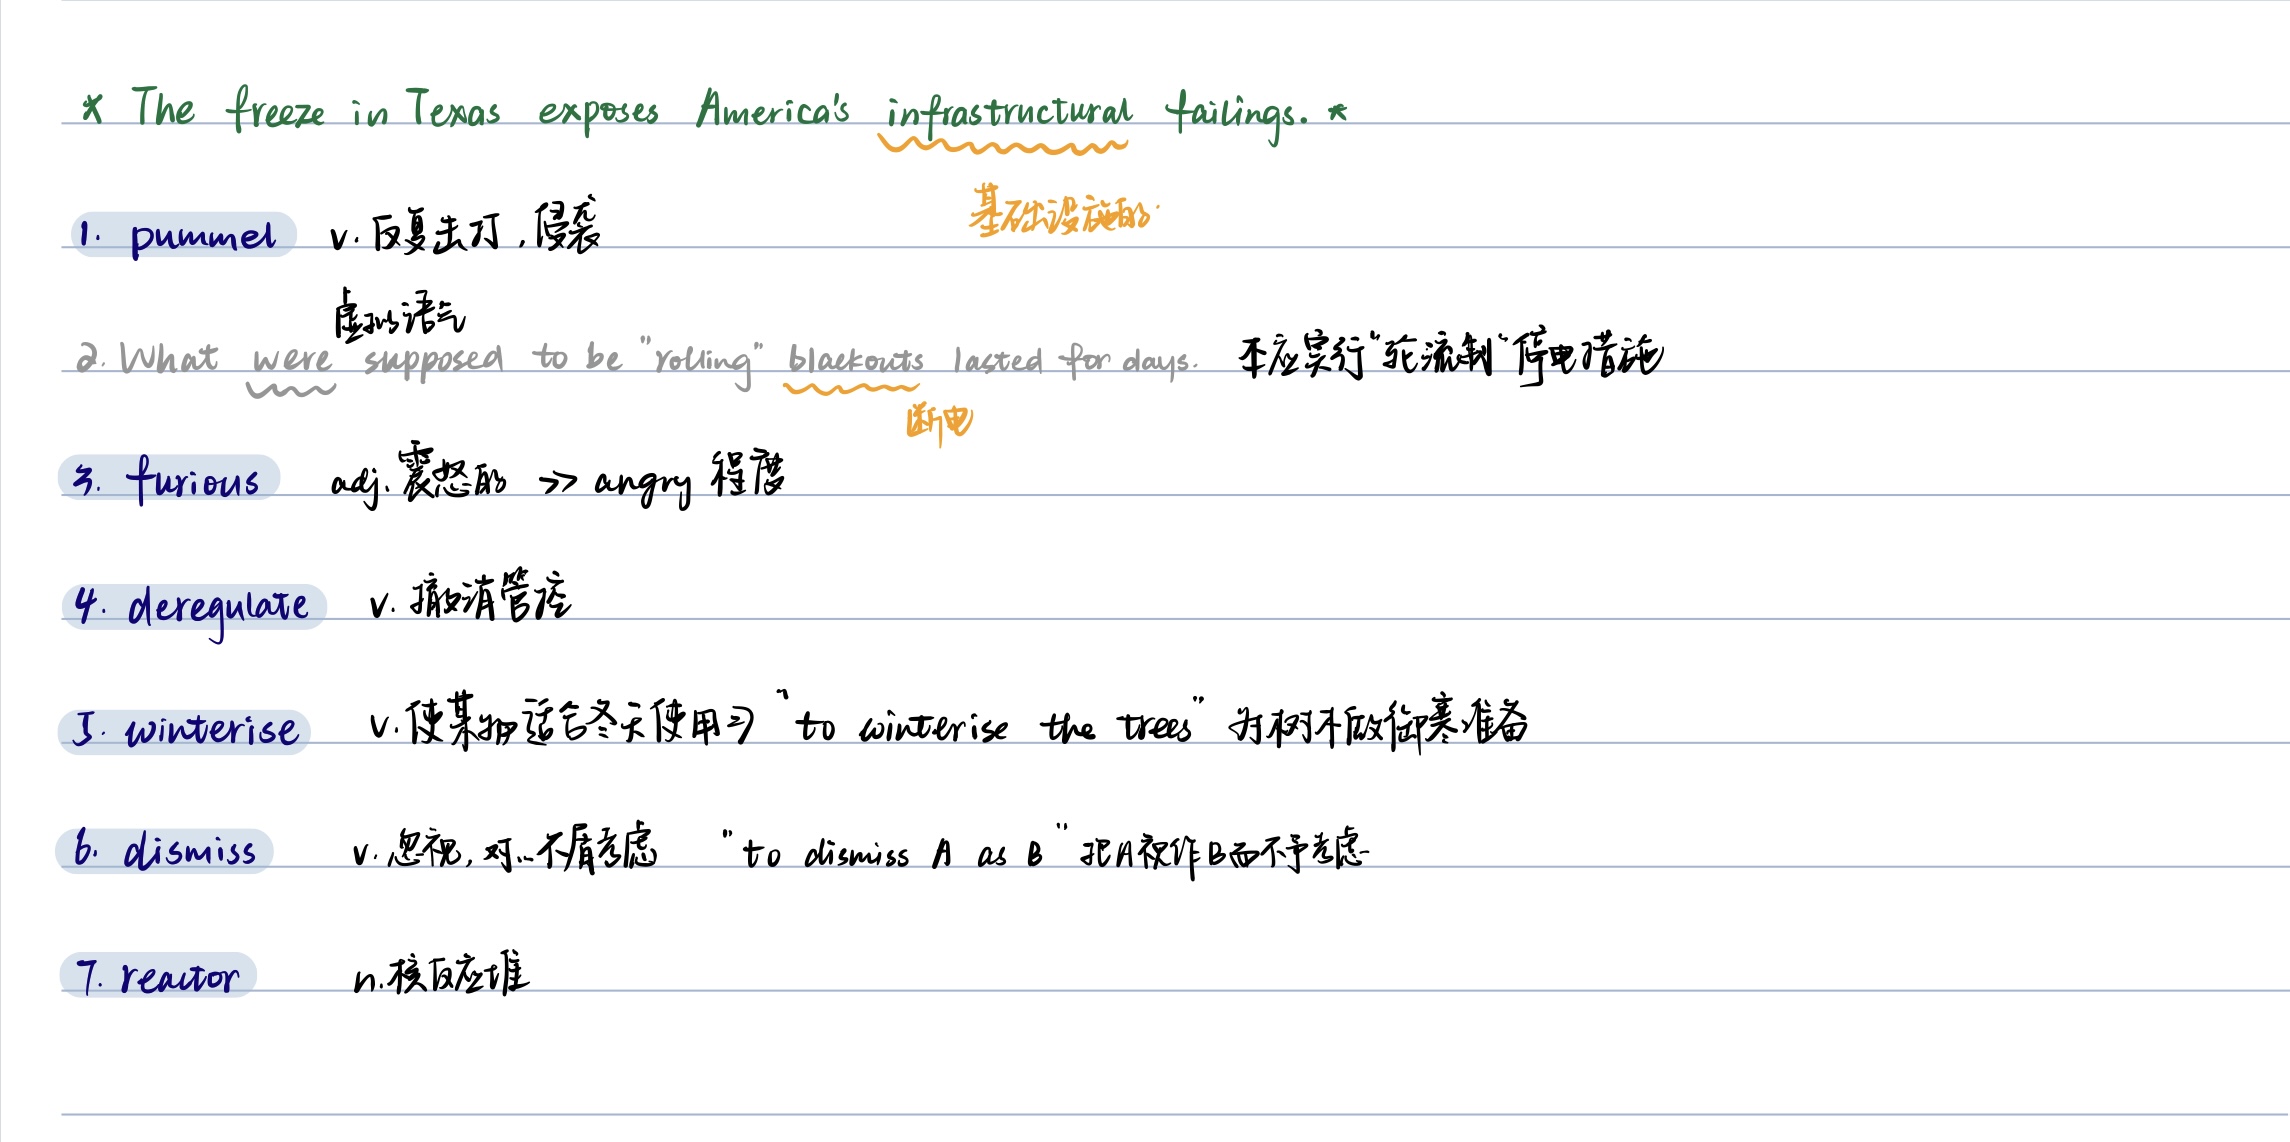 * The freeze in Texas exposes America's infrastructural failings. *
基础设施的
1. pummel v. 反复击打,侵袭
虚拟语气
2. What were supposed to be "rolling" blackouts lasted for days. 本应实行"轮流制"停电措施
断电
3. furious adj. 震怒的 >> angry 程度
4. deregulate v. 撤消管控
5. winterise v. 使某物适合冬天使用 => "to winterise the trees" 为树木做御寒准备
6. dismiss v. 忽视, 对...不屑考虑 "to dismiss A as B" 把A视作B而不予考虑
7. reactor n. 核反应堆